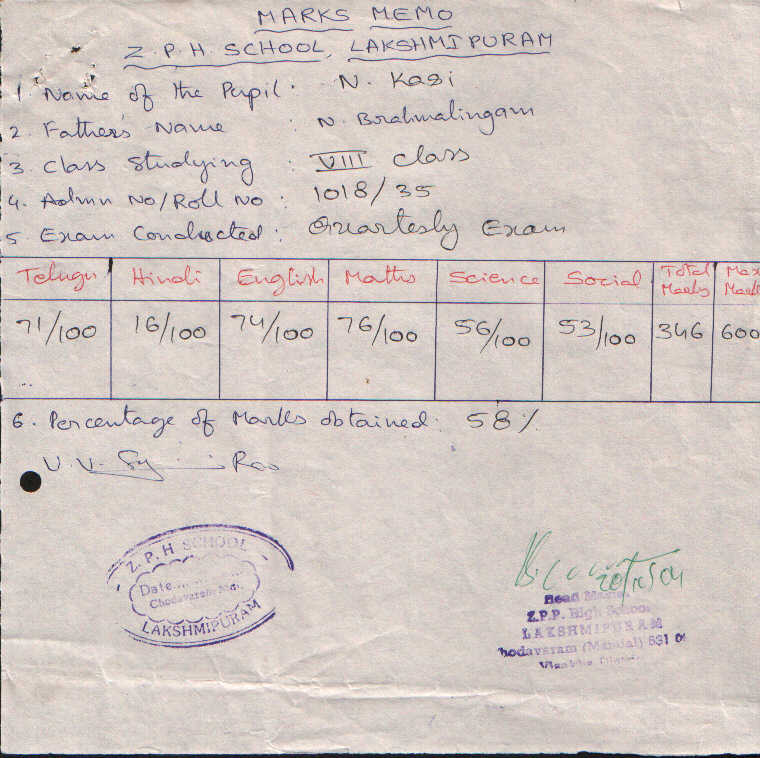 MARKS MEMO
Z.P.H. SCHOOL, LAKSHMIPURAM
1. Name of the Pupil: N. Kasi
2. Father's Name : N. Brahmalingam
3. Class Studying : VIII class
4. Admn No/Roll No : 1018/35
5. Exam Conducted : Quarterly Exam
Telugu Hindi English Maths Science Social Total Marks Max Marks
71/100 16/100 74/100 76/100 56/100 53/100 346 600
6. Percentage of Marks obtained: 58%
V.V. Rao
Z.P.H SCHOOL
Date
Chodavaram Md.
LAKSHMIPURAM
Head Master
Z.P.P. High School
LAKSHMIPURAM
hodavaram (Mandal) 531 0